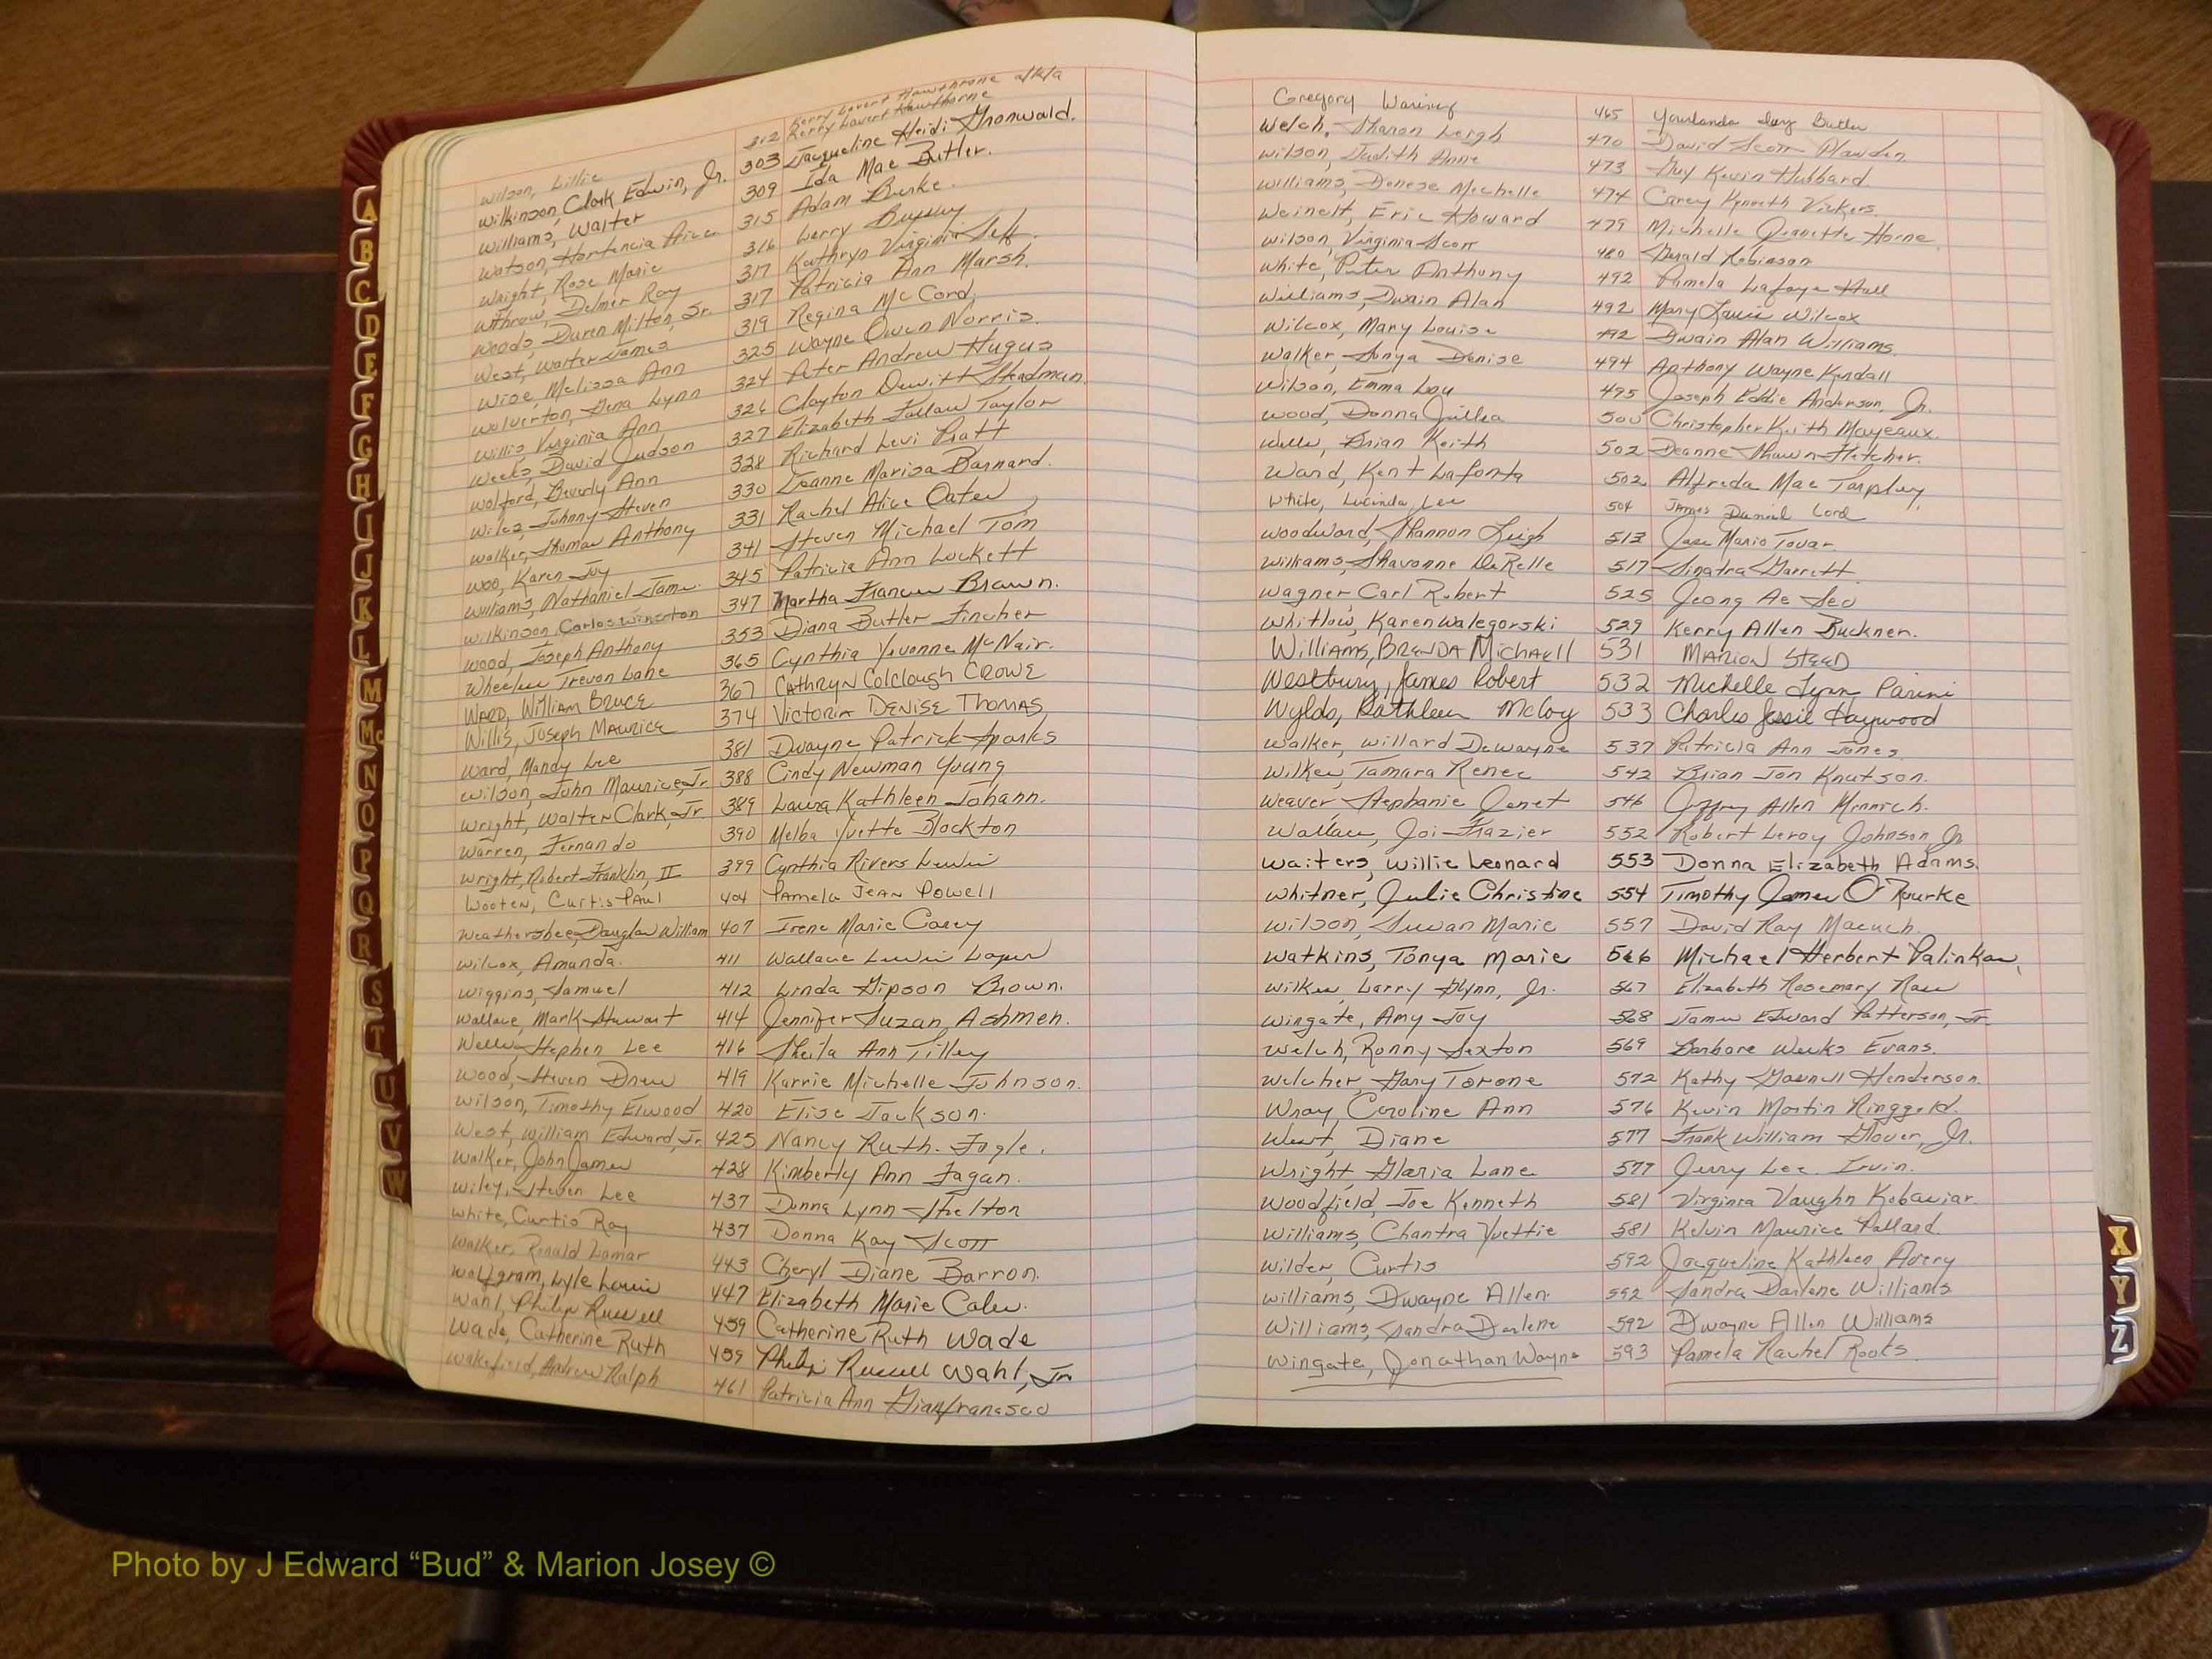 Kerry Lovert Hawthrone a/k/a
Wilson, Lillie 312 Kerry Lovert Hawthorne
Wilkinson, Clark Edwin, Jr. 303 Jacqueline Heidi Gronwald.
Williams, Walter 309 Ida Mae Butler.
Watson, Hortencia Alice 315 Adam Burke.
Wright, Rose Marie 316 Larry Bussey
Withrow, Delmer Ray 317 Kathryn Virginia Self.
Woods, Duren Milton, Sr. 317 Patricia Ann Marsh.
West, Walter James 319 Regina McCord
Wise, Melissa Ann 325 Wayne Owen Norris.
Wolverton, Gena Lynn 324 Peter Andrew Hugus
Willis, Virginia Ann 326 Clayton Dewitt Steadman
Weeks, David Judson 327 Elizabeth Fallaw Taylor
Wolford, Beverly Ann 328 Richard Levi Pratt
Wiles, Johnny Steven 330 Jeanne Marisa Barnard.
Walker, Thomas Anthony 331 Rachel Alice Oates
Woo, Karen Joy 341 Steven Michael Tom
Williams, Nathaniel James 345 Patricia Ann Lockett
Wilkinson, Carlos Winerton 347 Martha Frances Brown.
Wood, Joseph Anthony 353 Diana Butler Fincher
Wheeler Trevon Lane 365 Cynthia Yevonne McNair.
WARD, William Bruce 367 CAthryN Colclough CROWE
Willis, Joseph MAURICE 374 Victoria DENISE THOMAS
Ward, Mandy Lee 381 Dwayne Patrick Sparks
Wilson, John Maurice, Jr. 388 Cindy Newman Young
Wright, Walter Clark, Jr. 389 Laura Kathleen Johann.
Warren, Fernando 390 Melba Yvette Blockton
Wright, Robert Franklin, II 399 Cynthia Rivers Lewis
Wooten, Curtis Paul 404 Pamela Jean Powell
Weathersbee, Douglas William 407 Irene Marie Carey
Wilcox, Amanda. 411 Wallace Lewis
Wiggins, Samuel 412 Linda Gipson Brown.
Wallace, Mark Stewart 414 Jennifer Suzan Ashmen.
Wells, Stephen Lee 416 Sheila Ann Tilley
Wood, Steven Drew 419 Karrie Michelle Johnson.
Wilson, Timothy Elwood 420 Elise Jackson.
West, William Edward, Jr. 425 Nancy Ruth. Fogle.
Walker, John James 428 Kimberly Ann Fagan.
Wiley, Steven Lee 437 Donna Lynn Shelton
White, Curtis Ray 437 Donna Kay Scott
Walker, Ronald Lamar 443 Cheryl Diane Barron.
Wolfgram, Lyle Louis 447 Elizabeth Marie Cales.
Wahl, Philip Russell 459 Catherine Ruth Wade
Wade, Catherine Ruth 459 Philip Russell Wahl, Jr.
Wakefield, Andrew Ralph 461 Patricia Ann Gianfrancsco
Gregory Waring 465 Yourlanda Butler
Welch, Sharon Leigh 470 David Scott Plowden
Wilson, Judith Anne 473 Guy Kevin Hubbard.
Williams, Denese Mechelle 474 Carey Kenneth Vickers.
Weinelt, Eric Howard 479 Michelle Jeanette Horne
Wilson, Virginia Scott 480 Donald Robinson
White, Peter Anthony 492 Pamela Lafaye Hull
Williams, Dwain Alan 492 Mary Louise Wilcox
Wilcox, Mary Louise 492 Dwain Alan Williams.
Walker, Sonya Denise 494 Anthony Wayne Kendall
Wilson, Emma Lou 495 Joseph Eddie Anderson, Jr.
Wood, Donna Jullea 500 Christopher Keith Mayeaux.
Wells, Brian Keith 502 Deanne Shawn Fletcher.
Ward, Kent Lafonta 502 Alfreda Mae Tarpley,
White, Lucinda Lee 504 James Daniel Lord
Woodward, Shannon Leigh 513 Jose Mario Tovar.
Williams, Shavonne DeRelle 517 Sinatra Garrett.
Wagner, Carl Robert 525 Jeong Ae Seo
Whitlow, Karen Walegorski 529 Kerry Allen Buckner.
Williams, BRENDA Michaell 531 MARION STEED
Westbury, James Robert 532 Michelle Lynn Parini
Wylds, Kathleen McCoy 533 Charles Jessie Haywood
Walker, Willard Dewayne 537 Patricia Ann Jones
Wilkes, Tamara Renee 542 Brian Jon Knutson.
Weaver, Stephanie Janet 546 Jeffrey Allen Minnich.
Wallace, Joi Frazier 552 Robert Leroy Johnson, Jr.
Waiters, Willie Leonard 553 Donna Elizabeth Adams.
Whitner, Julie Christine 554 Timothy James O'Rourke
Wilson, Susan Marie 557 David Ray Macuch.
Watkins, Tonya Marie 566 Michael Herbert Palinkas,
Wilkes, Larry Glynn, Jr. 567 Elizabeth Rosemary
Wingate, Amy Joy 568 James Edward Patterson, Jr.
Welch, Ronny Sexton 569 Barbara Weeks Evans.
Welcher, Gary Torone 572 Kathy Henderson.
Wray Caroline Ann 576 Kevin Martin Ringgold.
West, Diane 577 Frank William Glover, Jr.
Wright, Gloria Lane 577 Jerry Lee. Irvin.
Woodfield, Joe Kenneth 581 Virginia Vaughn Kobaviar.
Williams, Chantra Yvettie 581 Kelvin Maurice Pollard.
Wilder, Curtis 592 Jacqueline Kathleen Avery
Williams, Dwayne Allen. 592 Sandra Darlene Williams
Williams, Sandra Darlene 592 Dwayne Allen Williams
Wingate, Jonathan Wayne 593 Pamela Rachel Roots
A
B
C
D
E
F
G
H
I
J
K
L
M
Mc
N
O
P
Q
R
S
T
U
V
W
X
Y
Z
Photo by J Edward “Bud” & Marion Josey ©